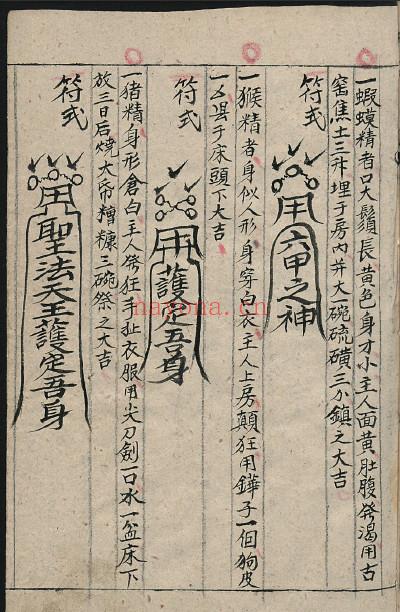 一蝦蟆精者口大鬚長黄色身才小主人面黄肚腹發渴用古
窑焦土三升埋于房内并大一碗硫磺三分鎮之大吉
符式
用六甲之神
一猴精者身似人形身穿白衣主人上房顛狂用鏵子一個狗皮
一
县于床頭下大吉
符式
用護定吾身
一猪精身形倉白主人發狂手扯衣服用尖刀劍一口水一盆床下
放三日后燒大布糟糠三碗祭之大吉
符式
用聖法天王護定吾身
nayona.cn